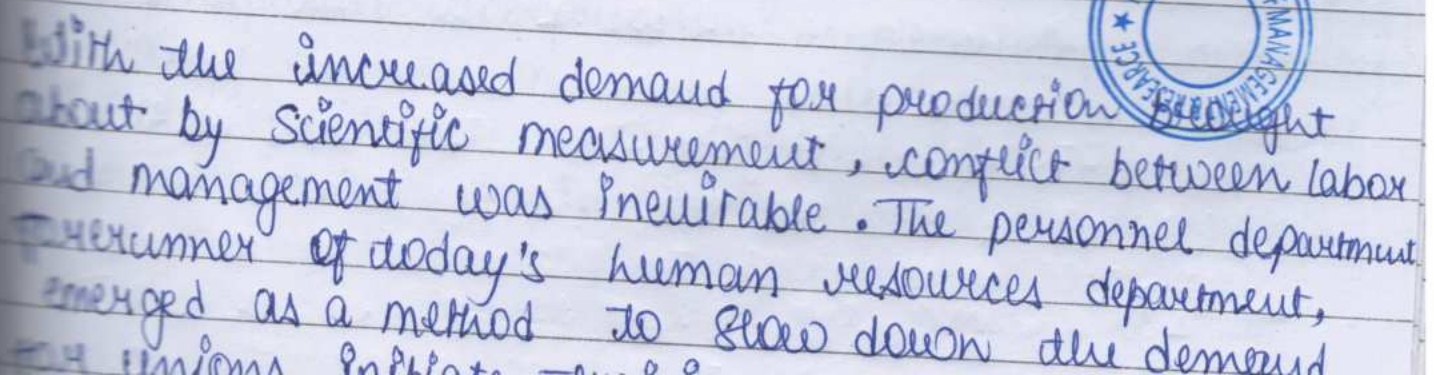 MANAGEMENT RESEARCE
With the increased demand for production brought
about by Scientific measurement, conflict between labor
and management was inevitable. The personnel department
forerunner of today's human resources department,
emerged as a method to slow down the demand
for unions initiate